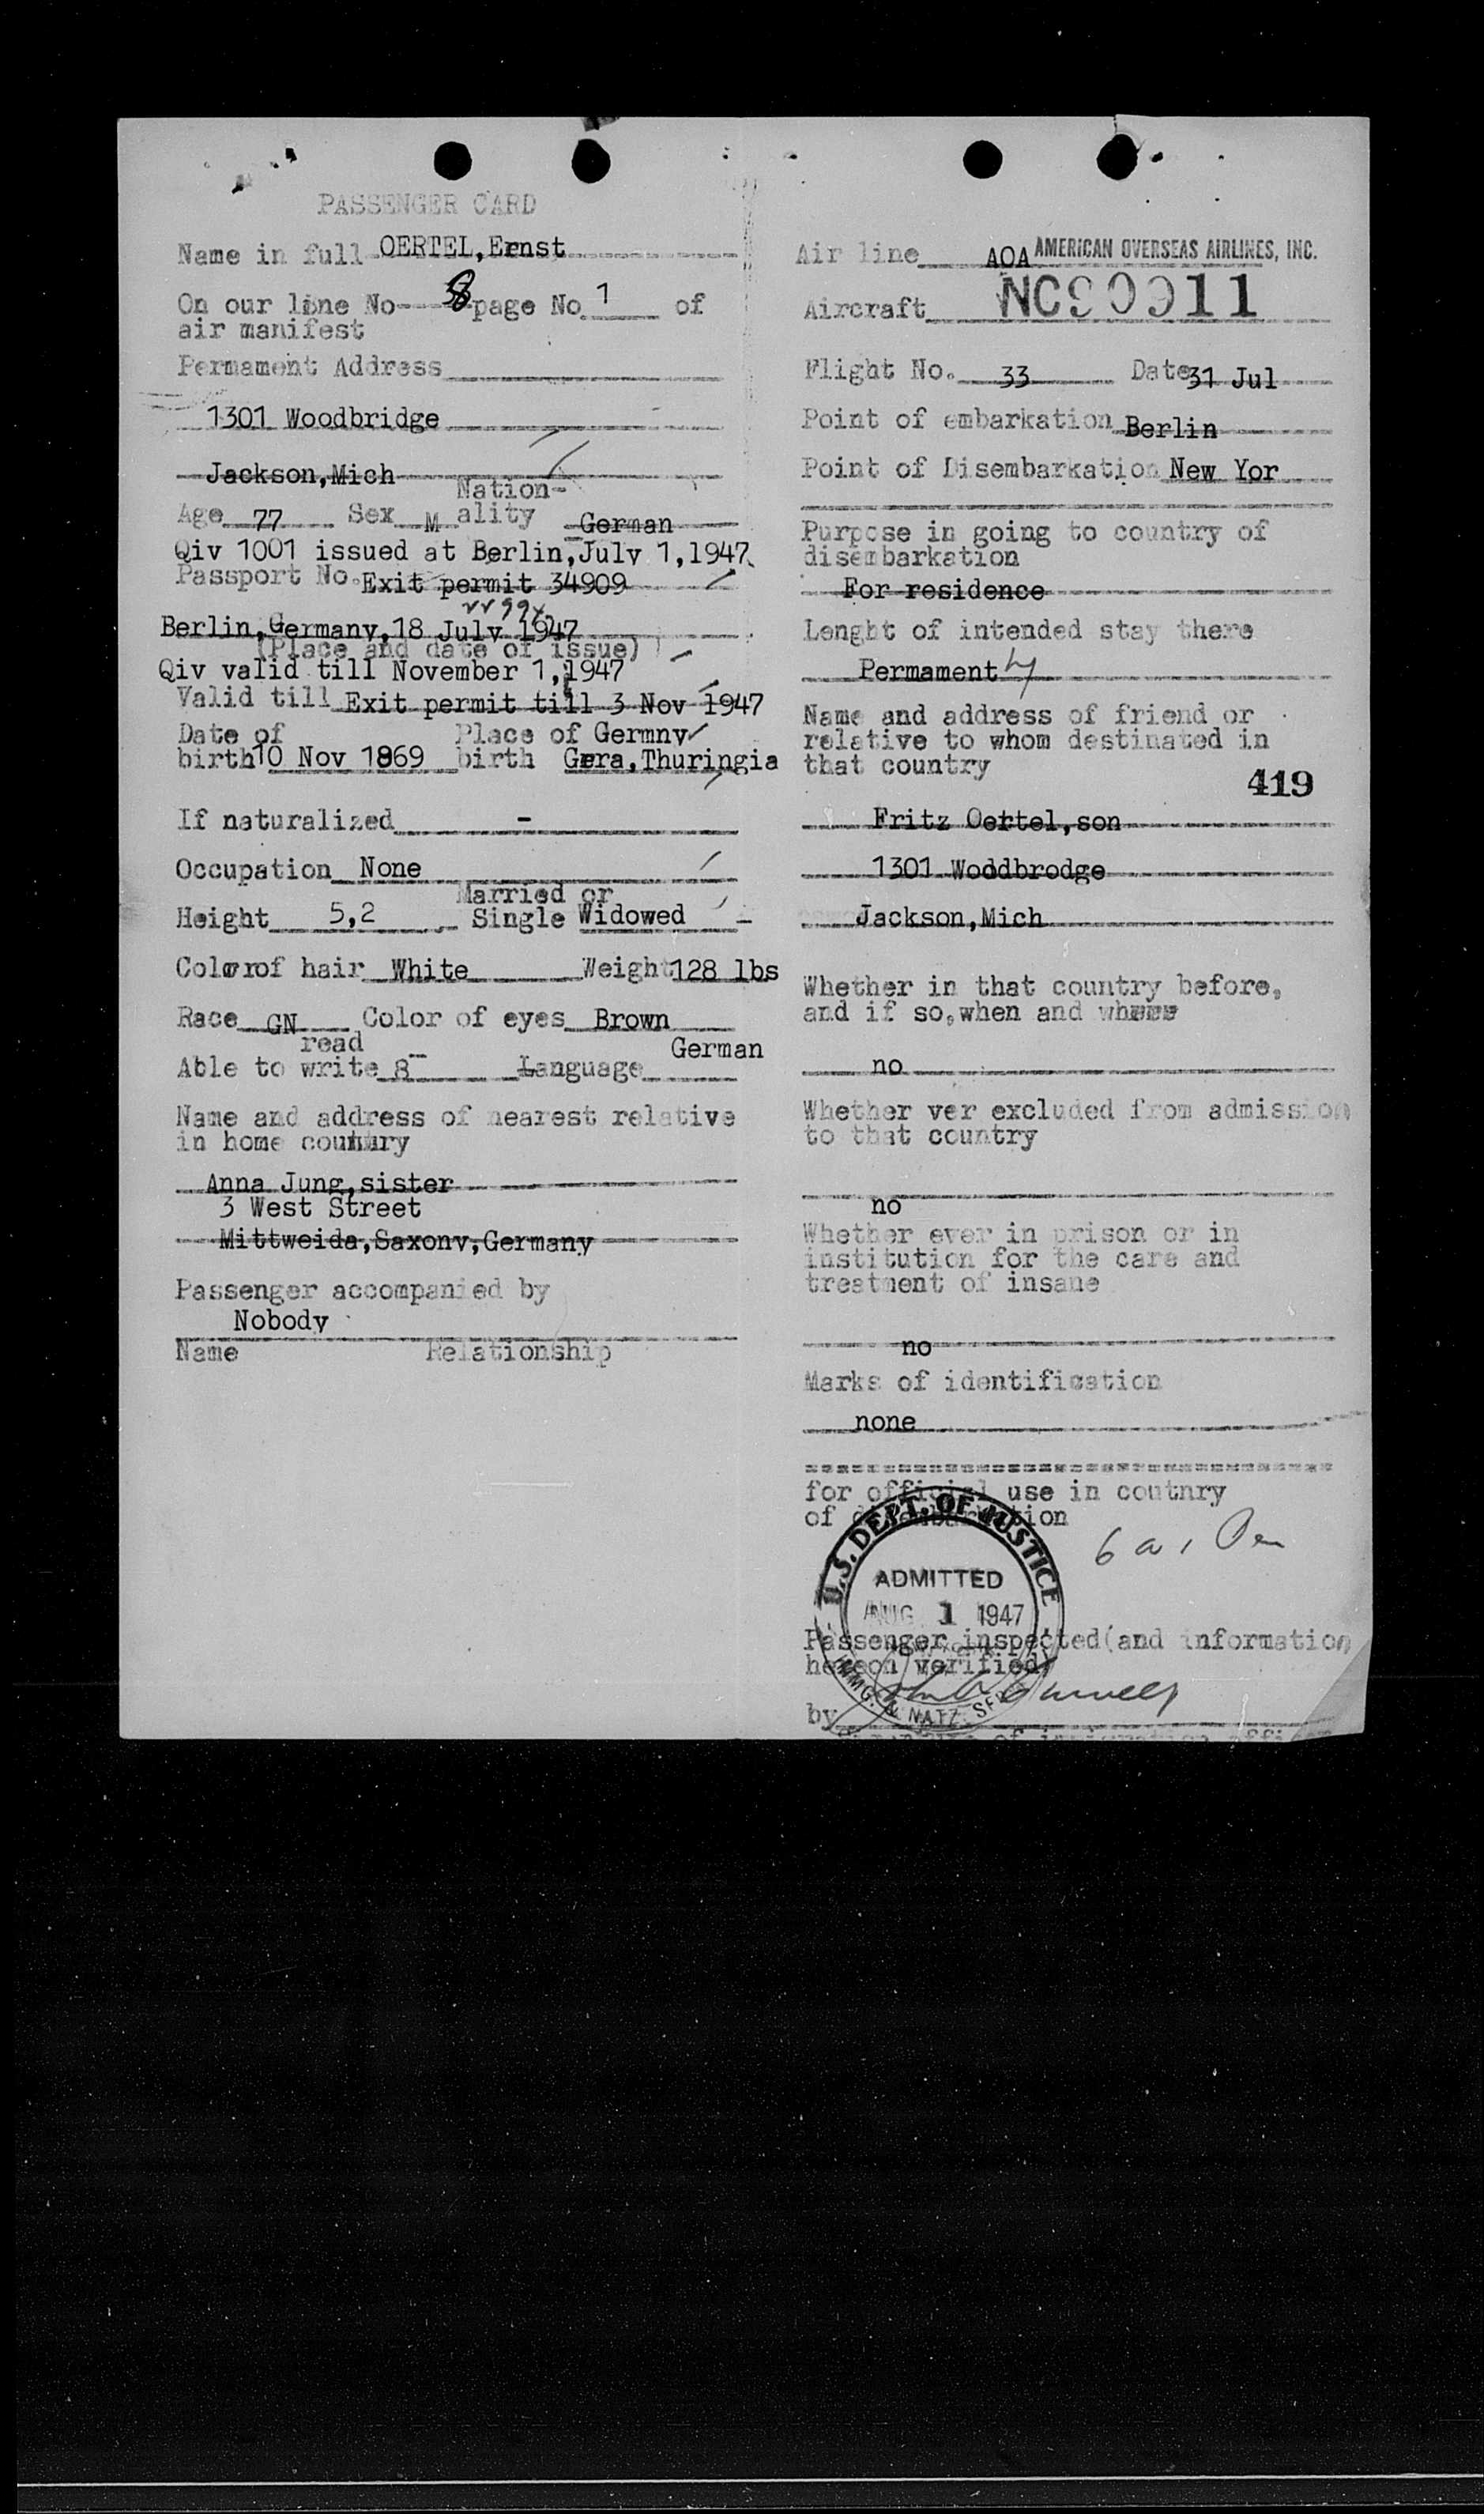 PASSENGER CARD
Name in full OERTEL,Ernst
On our line No 8 page No 1 of
air manifest
Permament Address
1301 Woodbridge
Jackson,Mich
Nation-
Age 77 Sex M ality German
Qiv 1001 issued at Berlin,July 1,1947
Passport No. Exit permit 34909
Berlin,Germany,18 July 1947
(Place and date of issue)
Qiv valid till November 1,1947
Valid till Exit permit till 3 Nov 1947
Date of Place of Germny
birth 10 Nov 1869 birth Gera,Thuringia
If naturalized -
Occupation None
Married or
Height 5,2 Single Widowed
Color of hair White Weight 128 lbs
Race GN Color of eyes Brown
read German
Able to write 8 Language
Name and address of nearest relative
in home country
Anna Jung,sister
3 West Street
Mittweida,Saxony,Germany
Passenger accompanied by
Nobody
Name Relationship
Air line AOA AMERICAN OVERSEAS AIRLINES, INC.
Aircraft NC90911
Flight No. 33 Date 31 Jul
Point of embarkation Berlin
Point of Disembarkation New Yor
Purpose in going to country of
disembarkation
For residence
Lenght of intended stay there
Permament
Name and address of friend or
relative to whom destinated in
that country
419
Fritz Oertel,son
1301 Woddbrodge
Jackson,Mich
Whether in that country before,
and if so,when and where
no
Whether ver excluded from admission
to that country
no
Whether ever in prison or in
institution for the care and
treatment of insane
no
Marks of identification
none
for official use in coutnry
of disembarkation
U.S. DEPT. OF JUSTICE
ADMITTED
AUG 1 1947
IMMG. & NATZ. SER
Passenger inspected(and information
hereon verified)
by